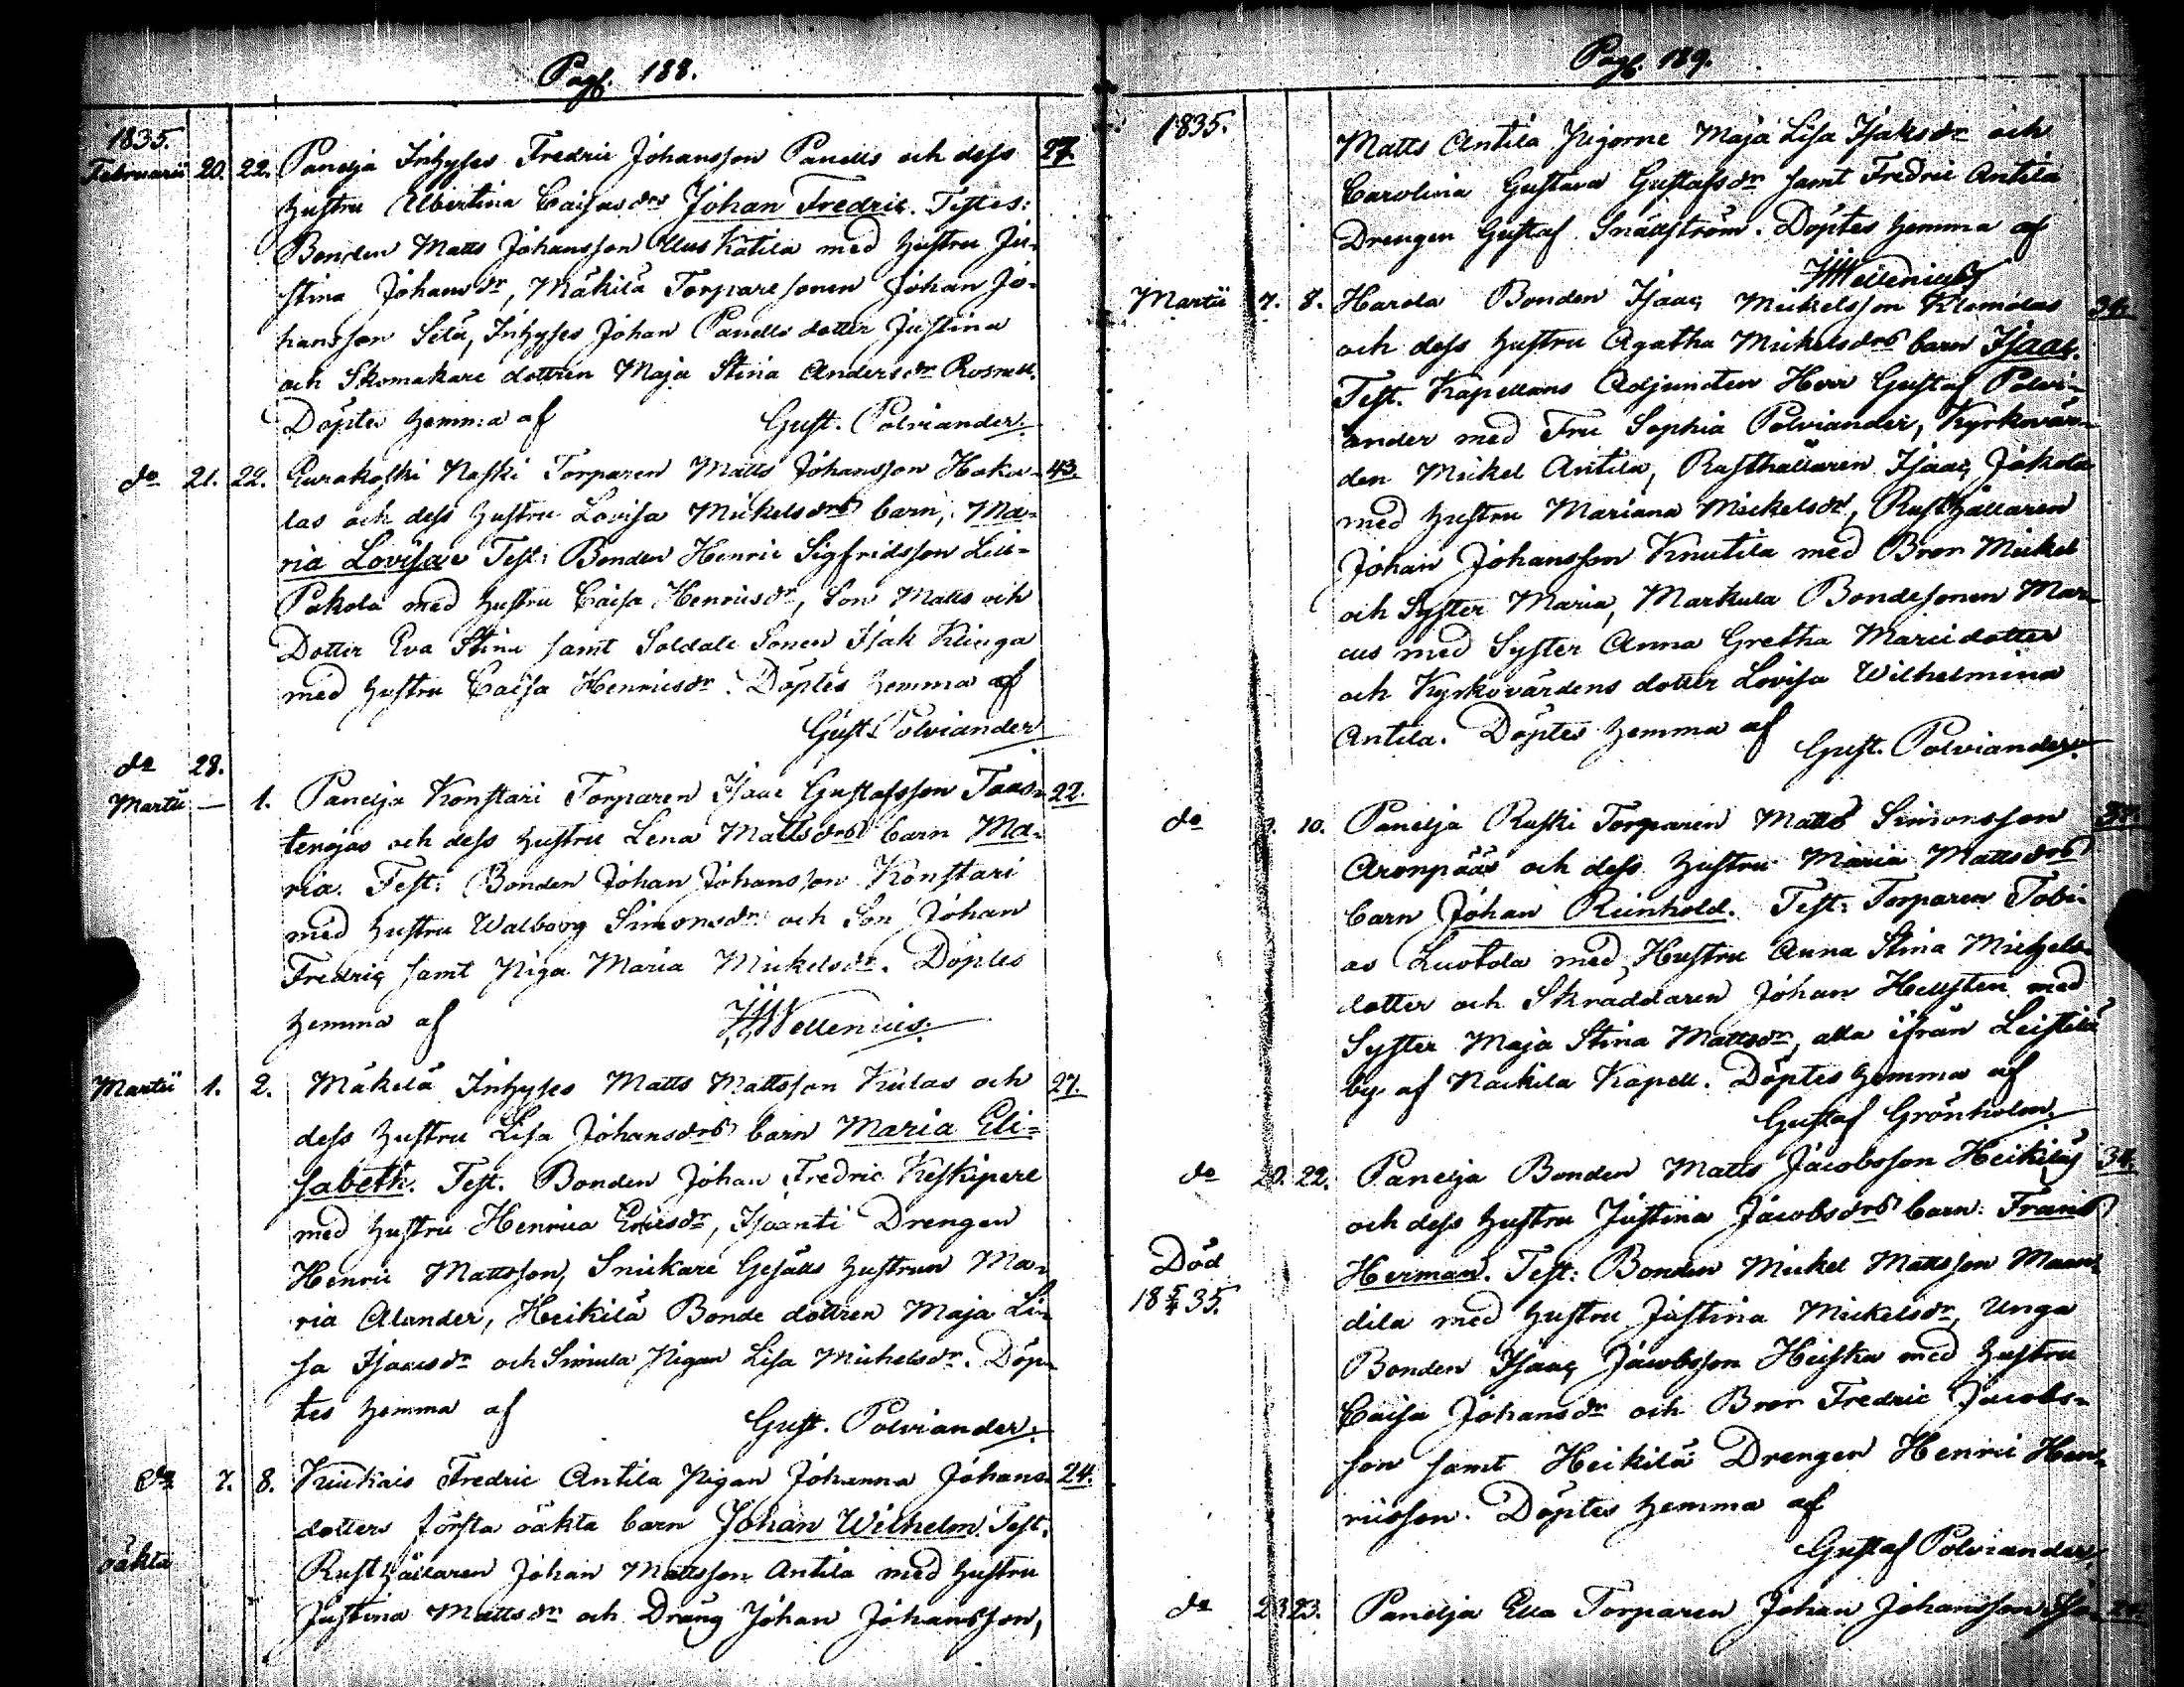 Pag. 188.
1835.
Februarii 20. 22. Panelja Inhyses Fredric Johansson Panells och dess 27.
hustru Albertina Caisasdrs Johan Fredric. Testes:
Bonden Matts Johansson Uus Katila med hustru Ju-
stina Johansdr, Mäkilä Torparesonen Johan Jo-
hansson Selä, Inhyses Johan Panells dotter Justina
och Skomakare dottren Maja Stina Andersdr Rosnell.
Döptes hemma af Gust. Polviander.
do 21. 22. Eurakoski Naski Torparen Matts Johansson Hakos- 43.
las och dess hustru Lovisa Mickelsdrs barn, Ma-
ria Lovisa. Test: Bonden Henric Sigfridsson Lill-
Pakola med hustru Caisa Henricsdr, Son Matts och
Dotter Eva Stina samt Soldate Sonen Isak Klinga
med hustru Caisa Henricsdr. Döptes hemma af
Gust. Polviander
do 28.
Martii — 1. Panelja Konstari Torparen Isaac Gustafsson Taas- 22.
tenojas och dess hustru Lena Mattsdrs barn Ma-
ria. Test: Bonden Johan Johansson Konstari
med hustru Walborg Simonsdr och Son Johan
Fredric samt Piga Maria Mickelsdr. Döptes
hemma af Wellenius.
Martii 1. 2. Mäkelä Inhyses Matts Mattsson Kulas och 27.
dess hustru Lisa Johansdrs barn Maria Eli-
sabeth. Test. Bonden Johan Fredric Keskipere
med hustru Henrica Ericsdr, Isoanti Drengen
Henric Mattsson, Snickare Gesälls hustrun Ma-
ria Alander, Heikilä Bonde dottren Maja Li-
sa Isacsdr och Simula Pigan Lisa Michelsdr. Döp-
tes hemma af Gust. Polviander.
do 7. 8. Kiukais Fredric Antila Pigan Johanna Johans- 24.
dotters första oäkta barn Johan Wilhelm. Test.
oäkta Rusthållaren Johan Mattsson Antila med hustru
Justina Mattsdr och Dräng Johan Johansson,
Pag. 189.
1835.
Matts Antila Pigorne Maja Lisa Isaksdr och
Carolina Gustava Gustafsdr samt Fredric Antila
Drengen Gustaf Snällström. Döptes hemma af
Wellenius
Martii 7. 8. Harola Bonden Isaac Mickelsson Klemolas 34.
och dess hustru Agatha Mickelsdrs barn Isaac.
Test. Kapellans Adjuncten Herr Gustaf Polvi-
ander med Fru Sophia Polviander, Kyrkovär-
den Mickel Antila, Rusthållaren Isaac Jakola
med hustru Mariana Mickelsdr, Rusthållaren
Johan Johansson Knutila med Bror Mickel
och Syster Maria, Markula Bondesonen Mar-
cus med Syster Anna Gretha Marcidotter
och Kyrkovärdens dotter Lovisa Wilhelmina
Antila. Döptes hemma af
Gust. Polviander.
do 10. Panelja Raski Torparen Matts Simonsson
Aronpääs och dess hustru Maria Mattsdrs
barn Johan Reinhold. Test: Torparen Tobi-
as Luotola med Hustru Anna Stina Michels-
dotter och Skräddaren Johan Hellsten med
Syster Maja Stina Mattsdr, alla ifrån Leistilä
by af Nackila Kapell. Döptes hemma af
Gustaf Grönholm.
do 20. 22. Panelja Bonden Matts Jacobsson Heikiläs 34.
och dess hustru Justina Jacobsdrs barn: Frans
Död Herman. Test: Bonden Mickel Mattsson Maan-
18 5/4 35. dila med hustru Justina Mickelsdr, Unga
Bonden Isaac Jacobsson Heiska med hustru
Caisa Johansdr och Bror Fredric Jacobs-
son samt Heikilä Drengen Henric Hen-
ricsson. Döptes hemma af
Gustaf Polviander.
do 23 23. Panelja Ella Torparen Johan Johansson